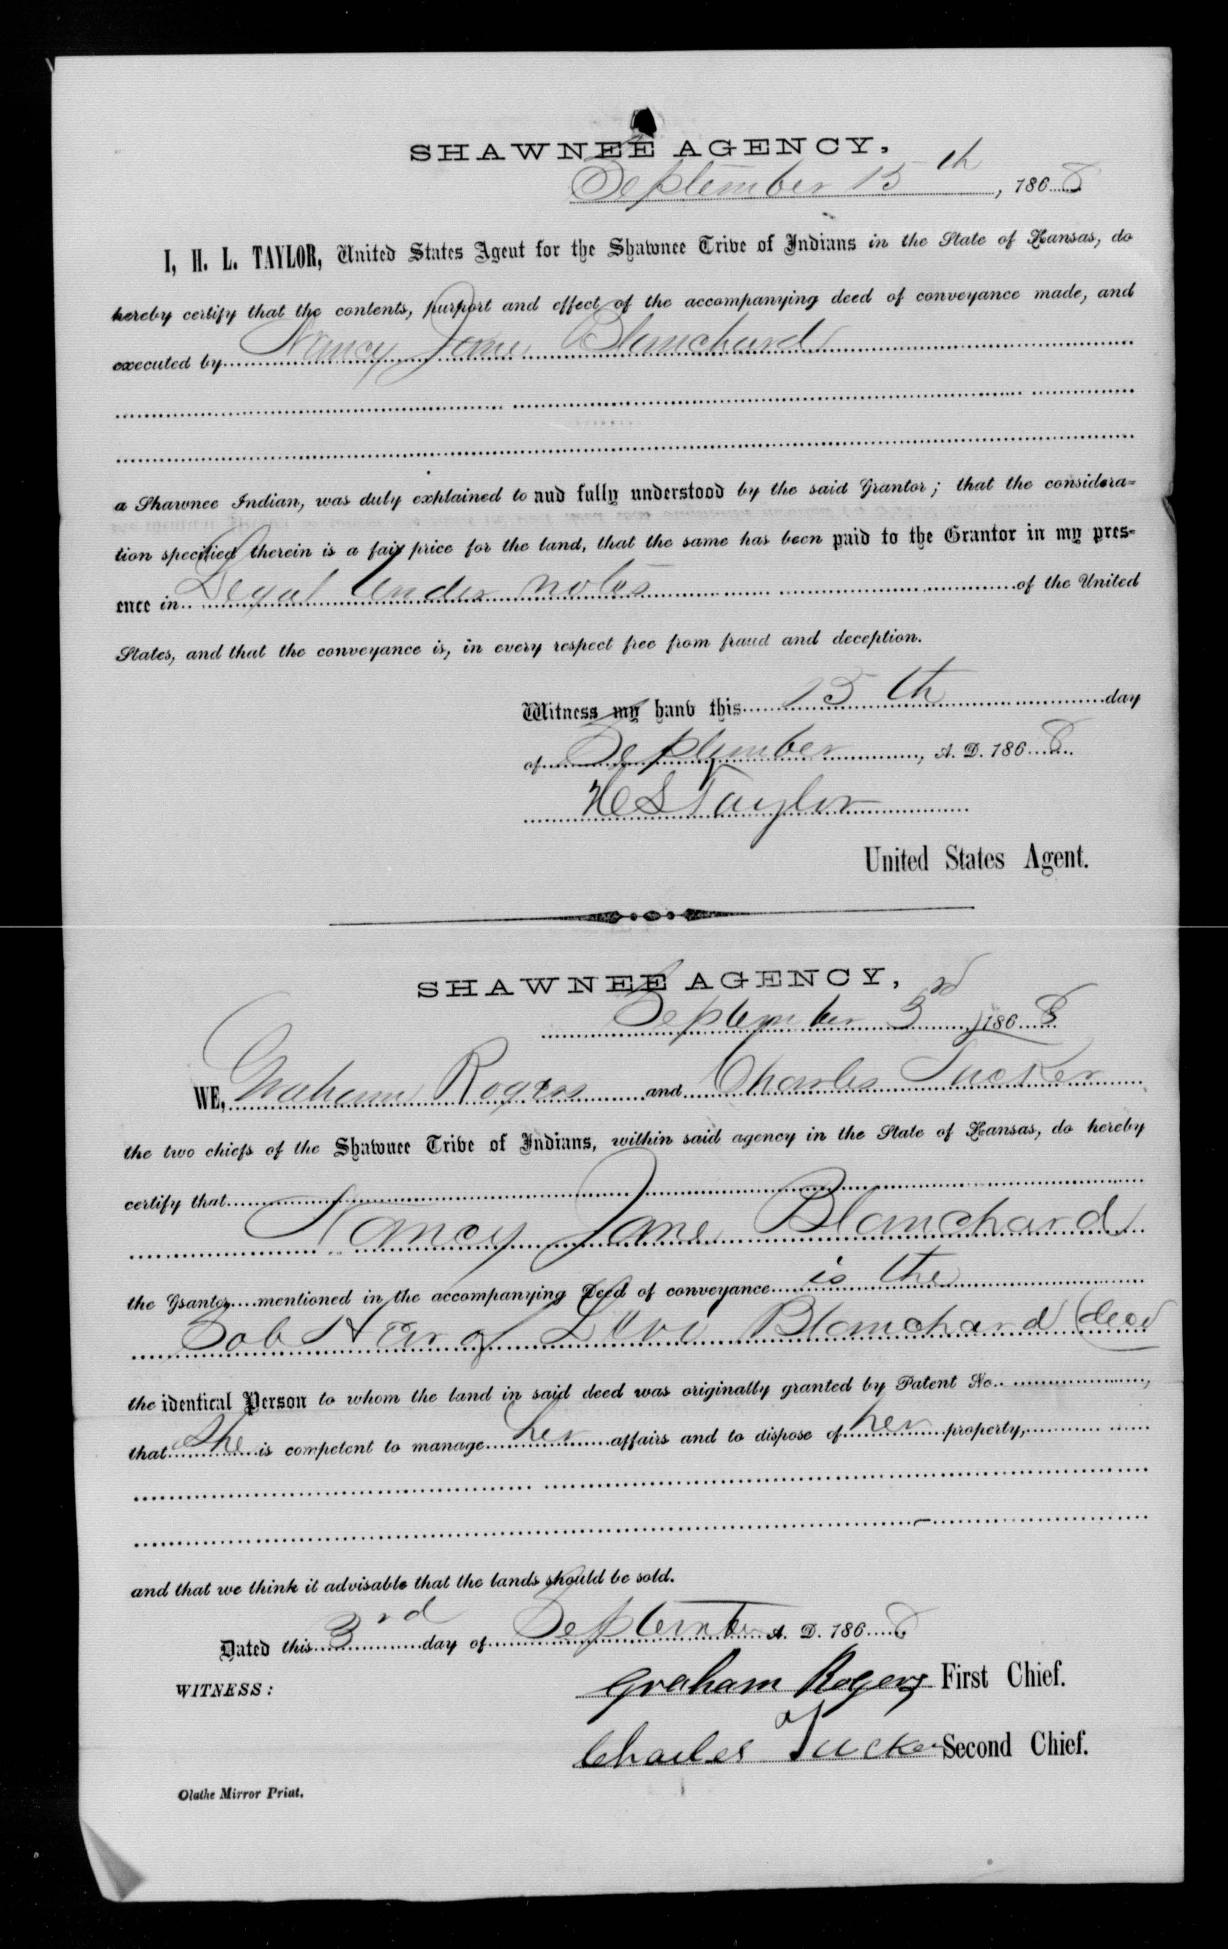 SHAWNEE AGENCY,
September 15th, 1868
I, H. L. TAYLOR, United States Agent for the Shawnee Tribe of Indians in the State of Kansas, do
hereby certify that the contents, purport and effect of the accompanying deed of conveyance made, and
executed by Nancy Jane Blanchard
a Shawnee Indian, was duly explained to and fully understood by the said Grantor; that the considera-
tion specified therein is a fair price for the land, that the same has been paid to the Grantor in my pres-
ence in Legal tender notes of the United
States, and that the conveyance is, in every respect free from fraud and deception.
Witness my hand this 15th day
of September, A. D. 1868
H L Taylor
United States Agent.
SHAWNEE AGENCY,
September 3rd, 1868
WE, Graham Rogers and Charles Tucker
the two chiefs of the Shawnee Tribe of Indians, within said agency in the State of Kansas, do hereby
certify that
Nancy Jane Blanchard
the Grantor mentioned in the accompanying Deed of conveyance is the
Sol Heir of Levi Blanchard decd
the identical Person to whom the land in said deed was originally granted by Patent No.,
that she is competent to manage her affairs and to dispose of her property,
and that we think it advisable that the lands should be sold.
Dated this 3rd day of September A. D. 1868
WITNESS:
Graham Rogers First Chief.
Charles Tucker Second Chief.
Olathe Mirror Print.